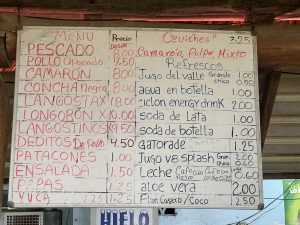 MENU Precio desde
PESCADO 8.00
POLLO Apanado 9.50
CAMARÓN 8.00
CONCHA negra 8.00
LANGOSTA X 18.00
LONGORÓN X 10.00
LANGOSTINOS 9.50
DEDITOS De Pollo 4.50
PATACONES 1.00
ENSALADA 1.50
PAPAS 1.25
YUCA 1.25 1.25
"Ceviches" 3.25
Camarón, Pulpo, Mixto
Refrescos
Jugo del valle Grande 1.00 chico 0.50
agua en botella 1.00
ciclon energy drink 2.00
soda de Lata 1.00
soda de botella 1.00
gatorade 1.25
Jugo V8 splash
Leche 0.60
aloe vera 2.00
Flan Casero / Coco 2.50
HIELO